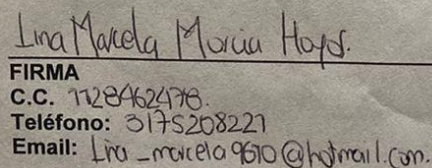 Lina Marcela Murcia Hoyos.
FIRMA
C.C. 1128462478.
Teléfono: 3175208221
Email: Lina_marcela9610@hotmail.com.